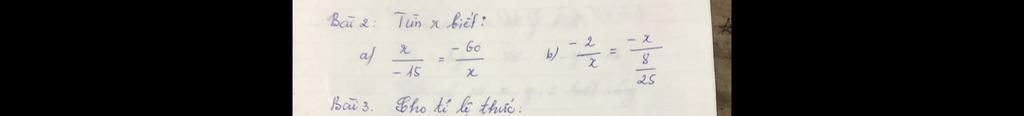 Bài 2: Tìm x biết:
a) x/-15 = -60/x b) -2/x = -x/(8/25)
Bài 3. Cho tỉ lệ thức: